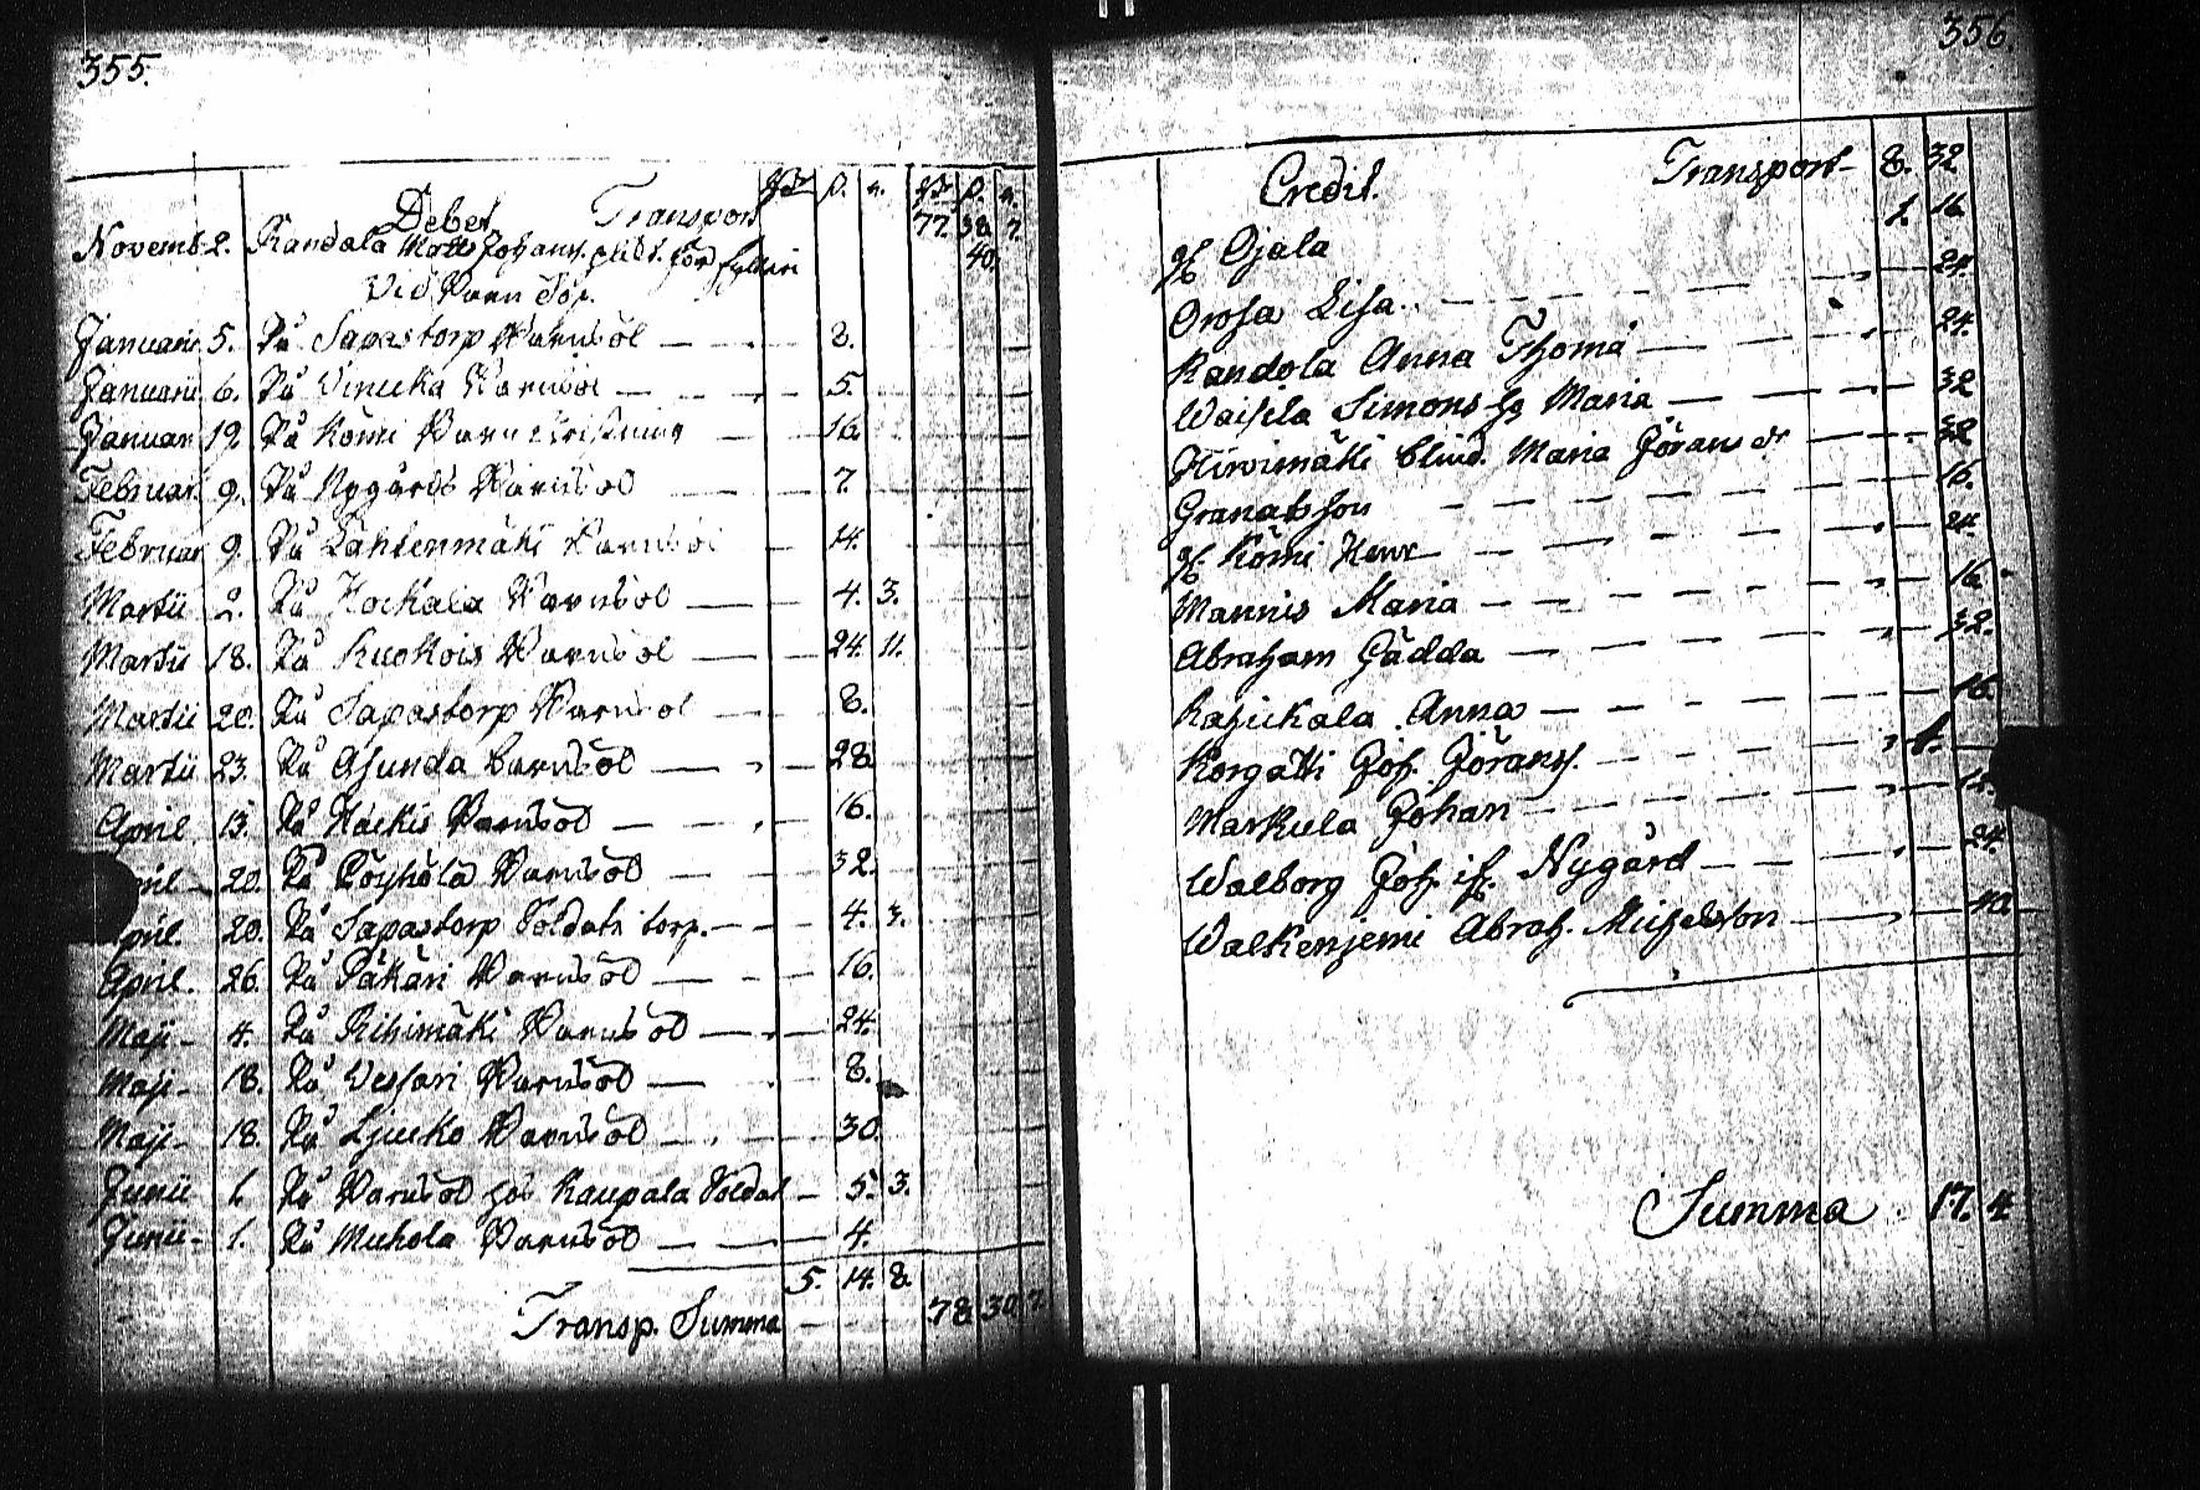 355.
Debet Transport
P. r. P. r.
77. 38. 7.
Novemb. 2. Randala Matts Johans. plikt. för fylleri 40.
Vid Barn Döp.
Januarii 5. På Sapastorp Barnsöl 8.
Januarii 6. På Vinicka Barnsöl 5.
Januar. 19. På Kömi Barn Christning 16.
Februar. 9. På Nygårds Barnsöl 7.
Februar. 9. På Lähtenmäki Barnsöl 14.
Martii 2. På Kockala Barnsöl 4. 3.
Martii 18. På Ruokois Barnsöl 24. 11.
Martii 20. På Sapastorp Barnsöl 8.
Martii 23. På Asunda barnsöl 28.
April. 13. På Häckis Barnsöl 16.
pril 20. På Pöyhölä Barnsöl 32.
pril. 20. På Sapastorp Soldats torp. 4. 3.
April. 26. På Päkäri Barnsöl 16.
Maji 4. På Rihimäki Barnsöl 24.
Maji 18. På Wessari Barnsöl 8.
Maji 18. På Ljucko Barnsöl 30.
Junii 1. På Barnsöl hos Kaupala Soldat 5. 3.
Junii 1. På Muhola Barnsöl 4.
5. 14. 8.
Transp. Summa 78. 30. 7.
356.
Credit. Transport 8. 32
Ojala 1. 16.
Orosa Lisa 24.
Randola Anna Thoma 24.
Waisela Simons Maria 32
Hirvimäki blind. Maria Jörans dr 32
Granatsson 16.
Kömi Henr 24.
Mannis Maria 16.
Abraham Gädda 32.
Rajukala Anna 16.
Korgatti Joh. Jöranss. 1.
Markula Johan 12.
Walborg Joh. Nygård 24.
Walkenjemi Abrah. Michelsson 40.
Summa 17. 4.